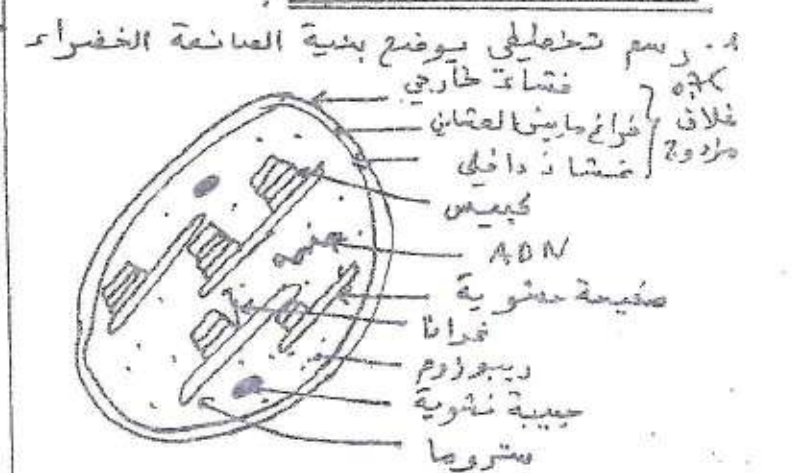 1. رسم تخطيطي يوضح بنية الصانعة الخضراء
غشاء خارجي
فراغ مابين الغشائين
غشاء داخلي
غلاف
مزدوج
كييس
ADN
صفيحة حشوية
غرانا
ريبوزوم
حبيبة نشوية
ستروما